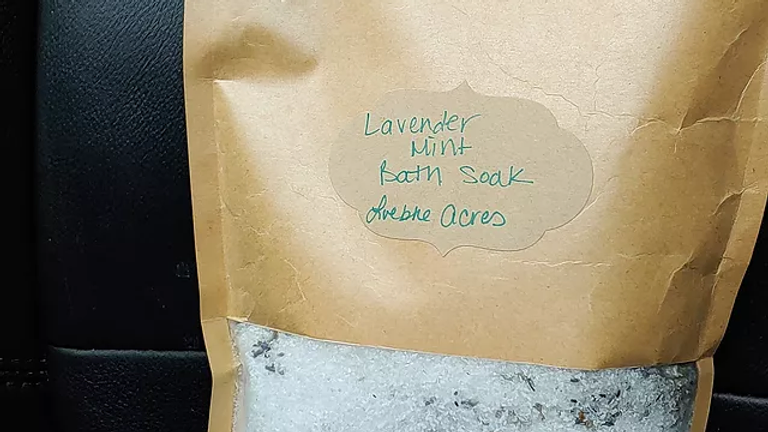 Lavender
Mint
Bath Soak
Acres